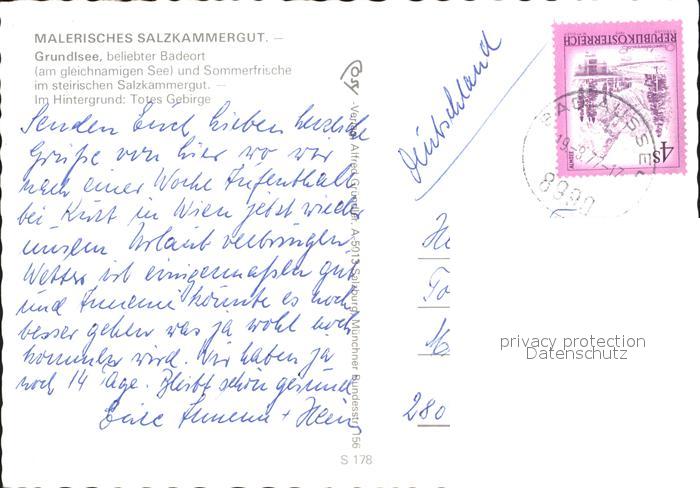 MALERISCHES SALZKAMMERGUT. —
Grundlsee, beliebter Badeort
(am gleichnamigen See) und Sommerfrische
im steirischen Salzkammergut. —
Im Hintergrund: Totes Gebirge
Senden Euch Lieben herzliche
Grüße von hier wo wir
nach einer Woche Aufenthalt
bei Kurt in Wien jetzt wieder
unseren Urlaub verbringen.
Wetter ist einigermaßen gut
und Annemi könnte es noch
besser gehen was ja wohl noch
kommen wird. Wir haben ja
noch 14 Tage. Bleibt schön gesund
Eure Annemi + Hein
Verlag Alfred Gründler, A-5013 Salzburg, Münchner Bundesstr. 156
S 178
Deutschland
REPUBLIK ÖSTERREICH
ALMSEE
4S
BAD AUSSEE
8990
He
To
280
privacy protection
Datenschutz